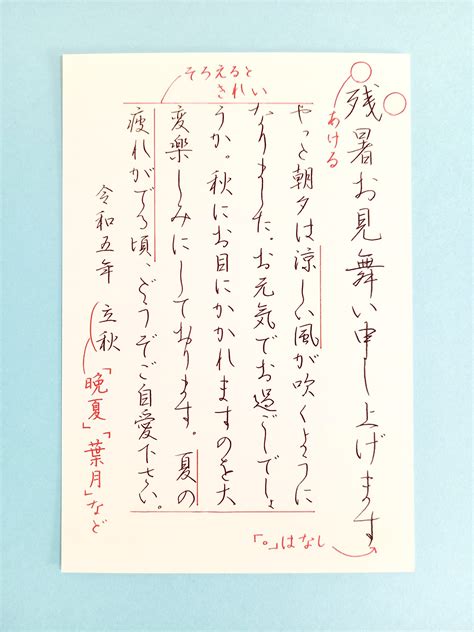 残暑お見舞い申し上げます
やっと朝夕は涼しい風が吹くように
なりました。お元気でお過ごしでしょ
うか。秋にお目にかかれますのを大
変楽しみにしております。夏の
疲れがでる頃、どうぞご自愛下さい。
令和五年 立秋
あける
そろえると
きれい
「。」はなし
「晩夏」「葉月」など